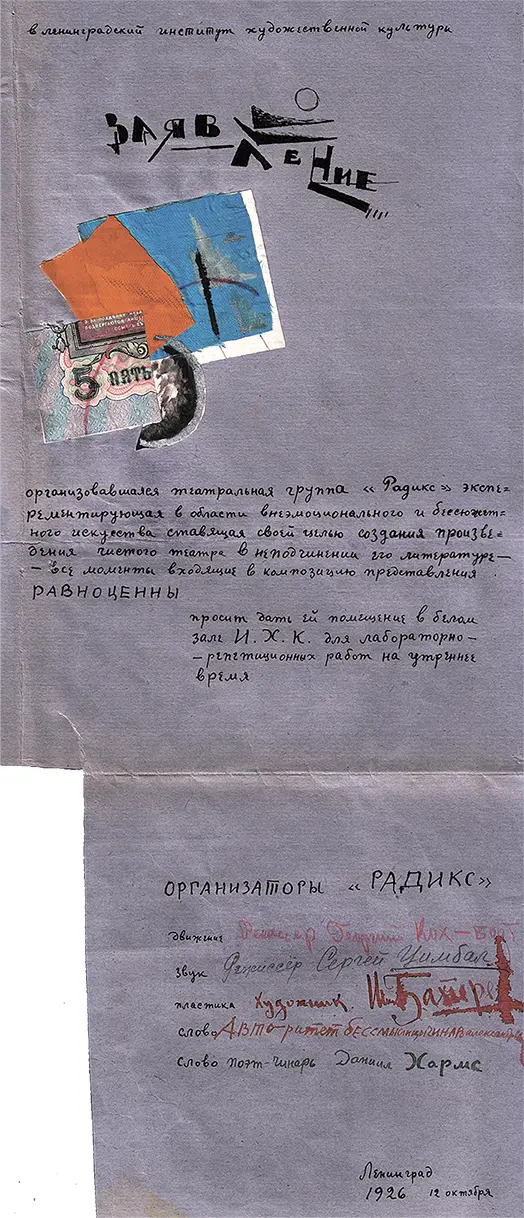 в ленинградский институт художественной культуры
ЗАЯВ
ЛЕНИЕ
ПОДВЕРГАЮТСЯ
5 ПЯТЬ
организовавшаяся театральная группа «Радикс» экспе-
рементирующая в области внеэмоционального и бессюжет-
ного искусства ставящая своей целью создания произве-
дения чистого театра в неподчинении его литературе —
— все моменты входящие в композицию представления
РАВНОЦЕННЫ
просит дать ей помещение в белом
зале И. Х. К. для лабораторно —
— репетиционных работ на утреннее
время
ОРГАНИЗАТОРЫ «РАДИКС»
движение Режиссер Георгий Кох-Боот
звук Режиссёр Сергей Цимбал
пластика художник
слово АВТО-РИТЕТ БЕССМЫСЛИЦЫ ЧИНАРЬ
слово поэт-чинарь Даниил Хармс
Ленинград
1926 12 октября